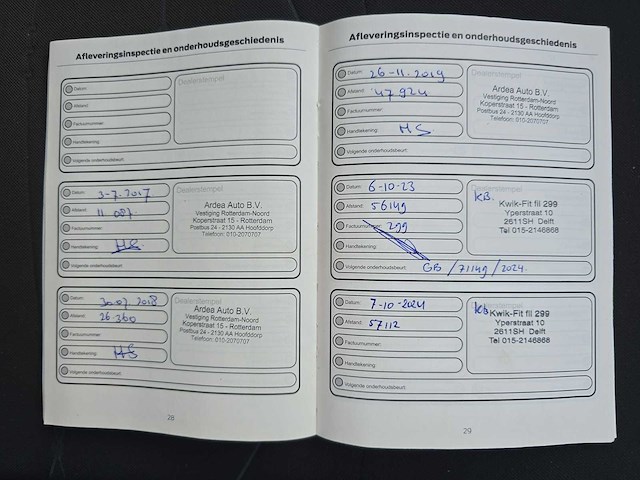 Afleveringsinspectie en onderhoudsgeschiedenis
Datum:
Dealerstempel
Afstand:
Factuurnummer:
Handtekening:
Volgende onderhoudsbeurt:
Datum: 3-7-2017
Dealerstempel
Ardea Auto B.V.
Vestiging Rotterdam-Noord
Koperstraat 15 - Rotterdam
Postbus 24 - 2130 AA Hoofddorp
Telefoon: 010-2070707
Afstand: 11 087
Factuurnummer:
Handtekening: HS
Volgende onderhoudsbeurt:
Datum: 30-07 2018
Dealerstempel
Ardea Auto B.V.
Vestiging Rotterdam-Noord
Koperstraat 15 - Rotterdam
Postbus 24 - 2130 AA Hoofddorp
Telefoon: 010-2070707
Afstand: 26.360
Factuurnummer:
Handtekening: HS
Volgende onderhoudsbeurt:
28
Afleveringsinspectie en onderhoudsgeschiedenis
Datum: 26-11-2019
Dealerstempel
Ardea Auto B.V.
Vestiging Rotterdam-Noord
Koperstraat 15 - Rotterdam
Postbus 24 - 2130 AA Hoofddorp
Telefoon: 010-2070707
Afstand: 47924
Factuurnummer:
Handtekening: HS
Volgende onderhoudsbeurt:
Datum: 6-10-23
Dealerstempel
KB.
Kwik-Fit fil 299
Yperstraat 10
2611SH Delft
Tel 015-2146868
Afstand: 56149
Factuurnummer: 299
Handtekening:
Volgende onderhoudsbeurt: GB / 71149 / 2024.
Datum: 7-10-2024
Dealerstempel
Kwik-Fit fil 299
Yperstraat 10
2611SH Delft
Tel 015-2146868
Afstand: 57112
Factuurnummer:
Handtekening:
Volgende onderhoudsbeurt:
29